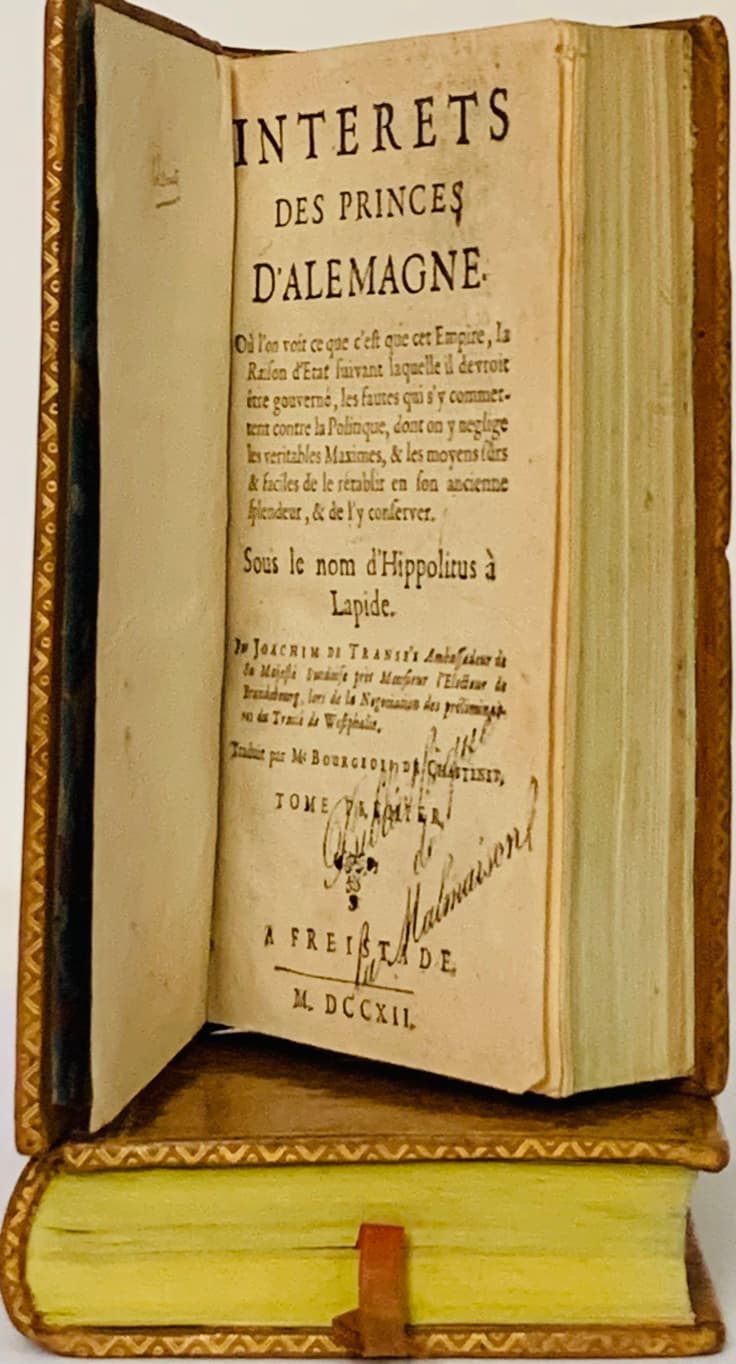 INTERETS
DES PRINCES
D'ALEMAGNE.
Où l'on voit ce que c'eſt que cet Empire, la
Raiſon d'Etat ſuivant laquelle il devroit
être gouverné, les fautes qui s'y commet-
tent contre la Politique, dont on y neglige
les veritables Maximes, & les moyens ſûrs
& faciles de le rétablir en ſon ancienne
ſplendeur, & de l'y conſerver.
Sous le nom d'Hippolitus à
Lapide.
Par JOACHIM DE TRANSE'E Ambaſſadeur de
Sa Majeſté Suedoiſe près Monſieur l'Electeur de
Brandebourg, lors de la Negociation des préliminai-
res du Traité de Weſtphalie.
Traduit par Mr BOURGEOIS DU CHASTENET,
TOME PREMIER.
de
la Malmaison
A FREISTADE,
M. DCCXII.